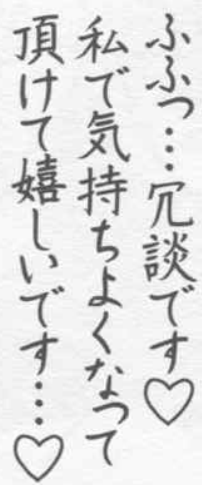 ふふっ…冗談です♡
私で気持ちよくなって
頂けて嬉しいです…♡